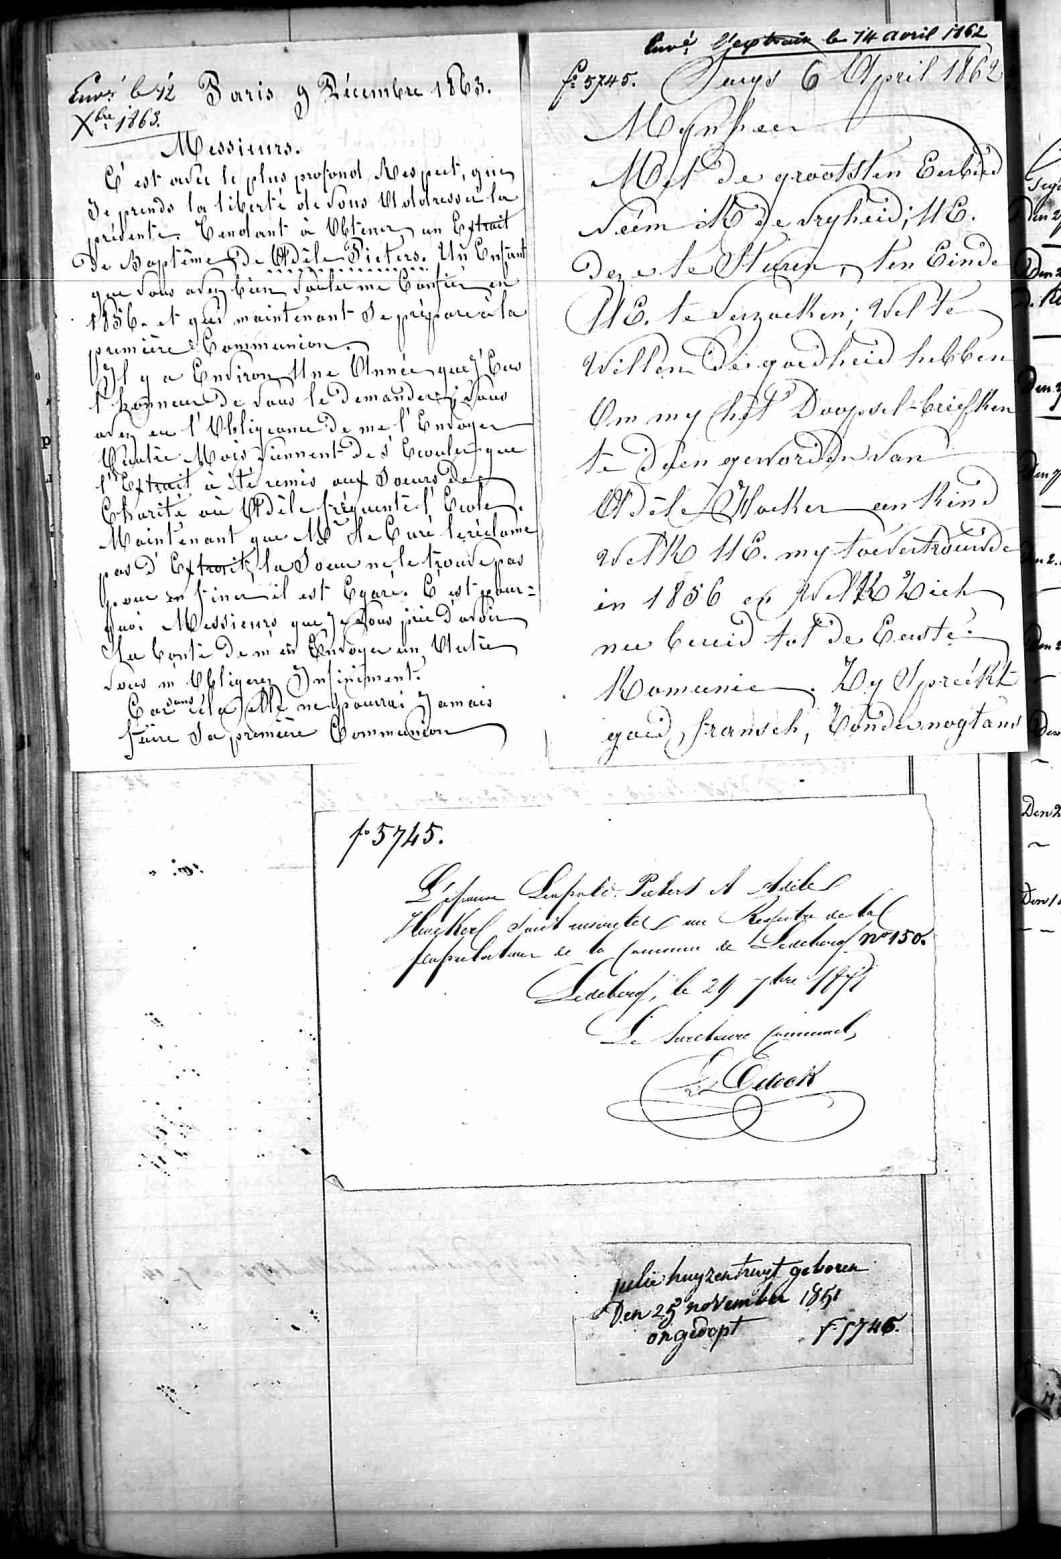 Envoyé le 12
Xbre 1863.
Paris 9 Décembre 1863.
Messieurs.
C'est avec le plus profond Respect, que
Je prends la liberté de Vous Addresser la
présente. Tendant à Obtenir un Extrait
de Baptême de Adèle Pieters. Un Enfant
que vous avez bien voulu me Confier en
1856. et qui maintenant Se prépare à la
première Communion.
Il y a Environ Une Année que J'Eus
l'honneur de vous le demander; Vous
avez eu l'Obligeance de me l'Envoyer
Mois viennent de S'Ecouler que
l'Extrait à été remis aux Soeurs de
Charité où Adèle fréquente l'Ecole.
Maintenant que Mr le Curé le réclame
pas d'Extrait, la Soeur ne le trouve pas
il est Egaré. C'est pour-
quoi Messieurs que Je Vous prie d'avoir
La bonté de m'en Envoyer un Autre
Vous m'Obligerez Infiniment.
Car sans cela Elle ne pourrai Jamais
faire Sa première Communion
Envé l'extrait le 14 avril 1862
fo 5745. Parys 6 April 1862
Mynheer
Met de grootsten Eerbied
Néém ik de vryheid; UE.
deze te Sturen, ten Einde
UE. te verzoeken; Wel te
Willen de goedheid hebben
Om my het Doopsel-briefken
te doen geworden van
Adèle Haeker een Kind
welk UE. my toevertrouwde
in 1856 en Welk Zich
nu bereid tot de Eerste
Komunie. Zy Spreékt
goed fransch, Zonder nogtans
fo 5745.
L'épouse Léopold Pieters et Adèle
Haeker sont inscrites au Registre de la
population de la Commune de Ledeberg No 150.
Ledeberg, le 29 7bre 1871
Le Secrétaire Communal,
julie huyzentruyt geboren
Den 25 november 1851
ongedopt f 5745.